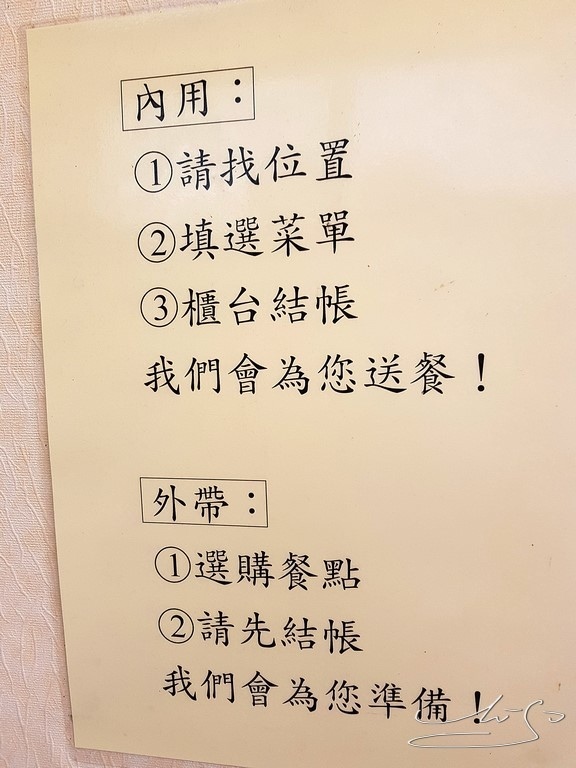 內用：
①請找位置
②填選菜單
③櫃台結帳
我們會為您送餐！
外帶：
①選購餐點
②請先結帳
我們會為您準備！